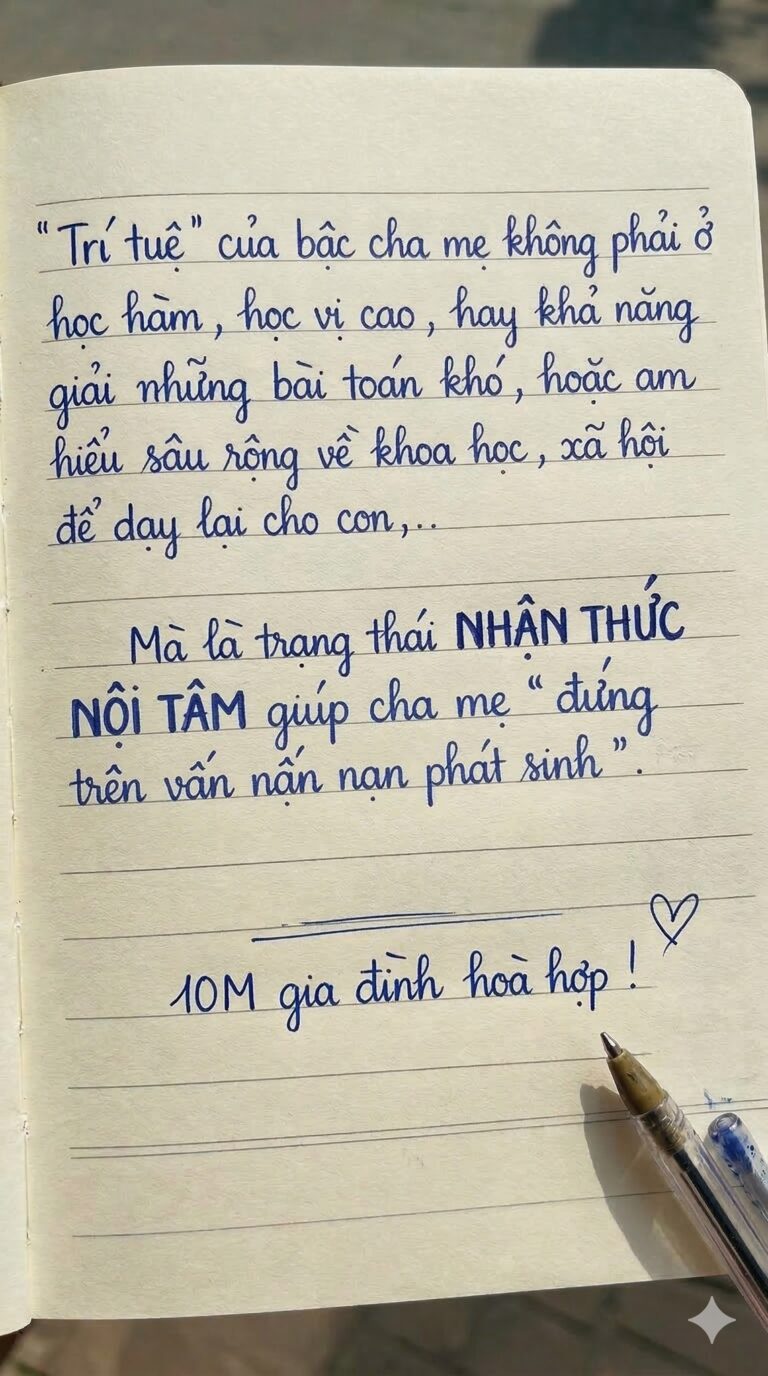 “Trí tuệ” của bậc cha mẹ không phải ở
học hàm, học vị cao, hay khả năng
giải những bài toán khó, hoặc am
hiểu sâu rộng về khoa học, xã hội
để dạy lại cho con,..
Mà là trạng thái NHẬN THỨC
NỘI TÂM giúp cha mẹ “đứng
trên vấn nận nạn phát sinh”.
10M gia đình hoà hợp!